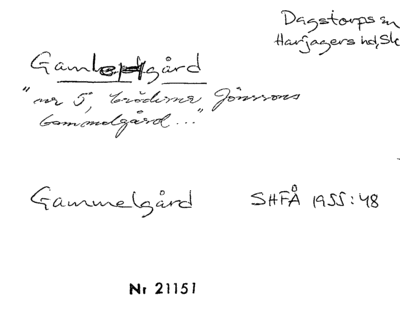 Dagstorps sn
Harjagers hd, Sk
Gamlegård
"nr 5, bröderna Jönssons
Gammelgård..."
Gammelgård SHFÅ 1955:48
Nr 21151